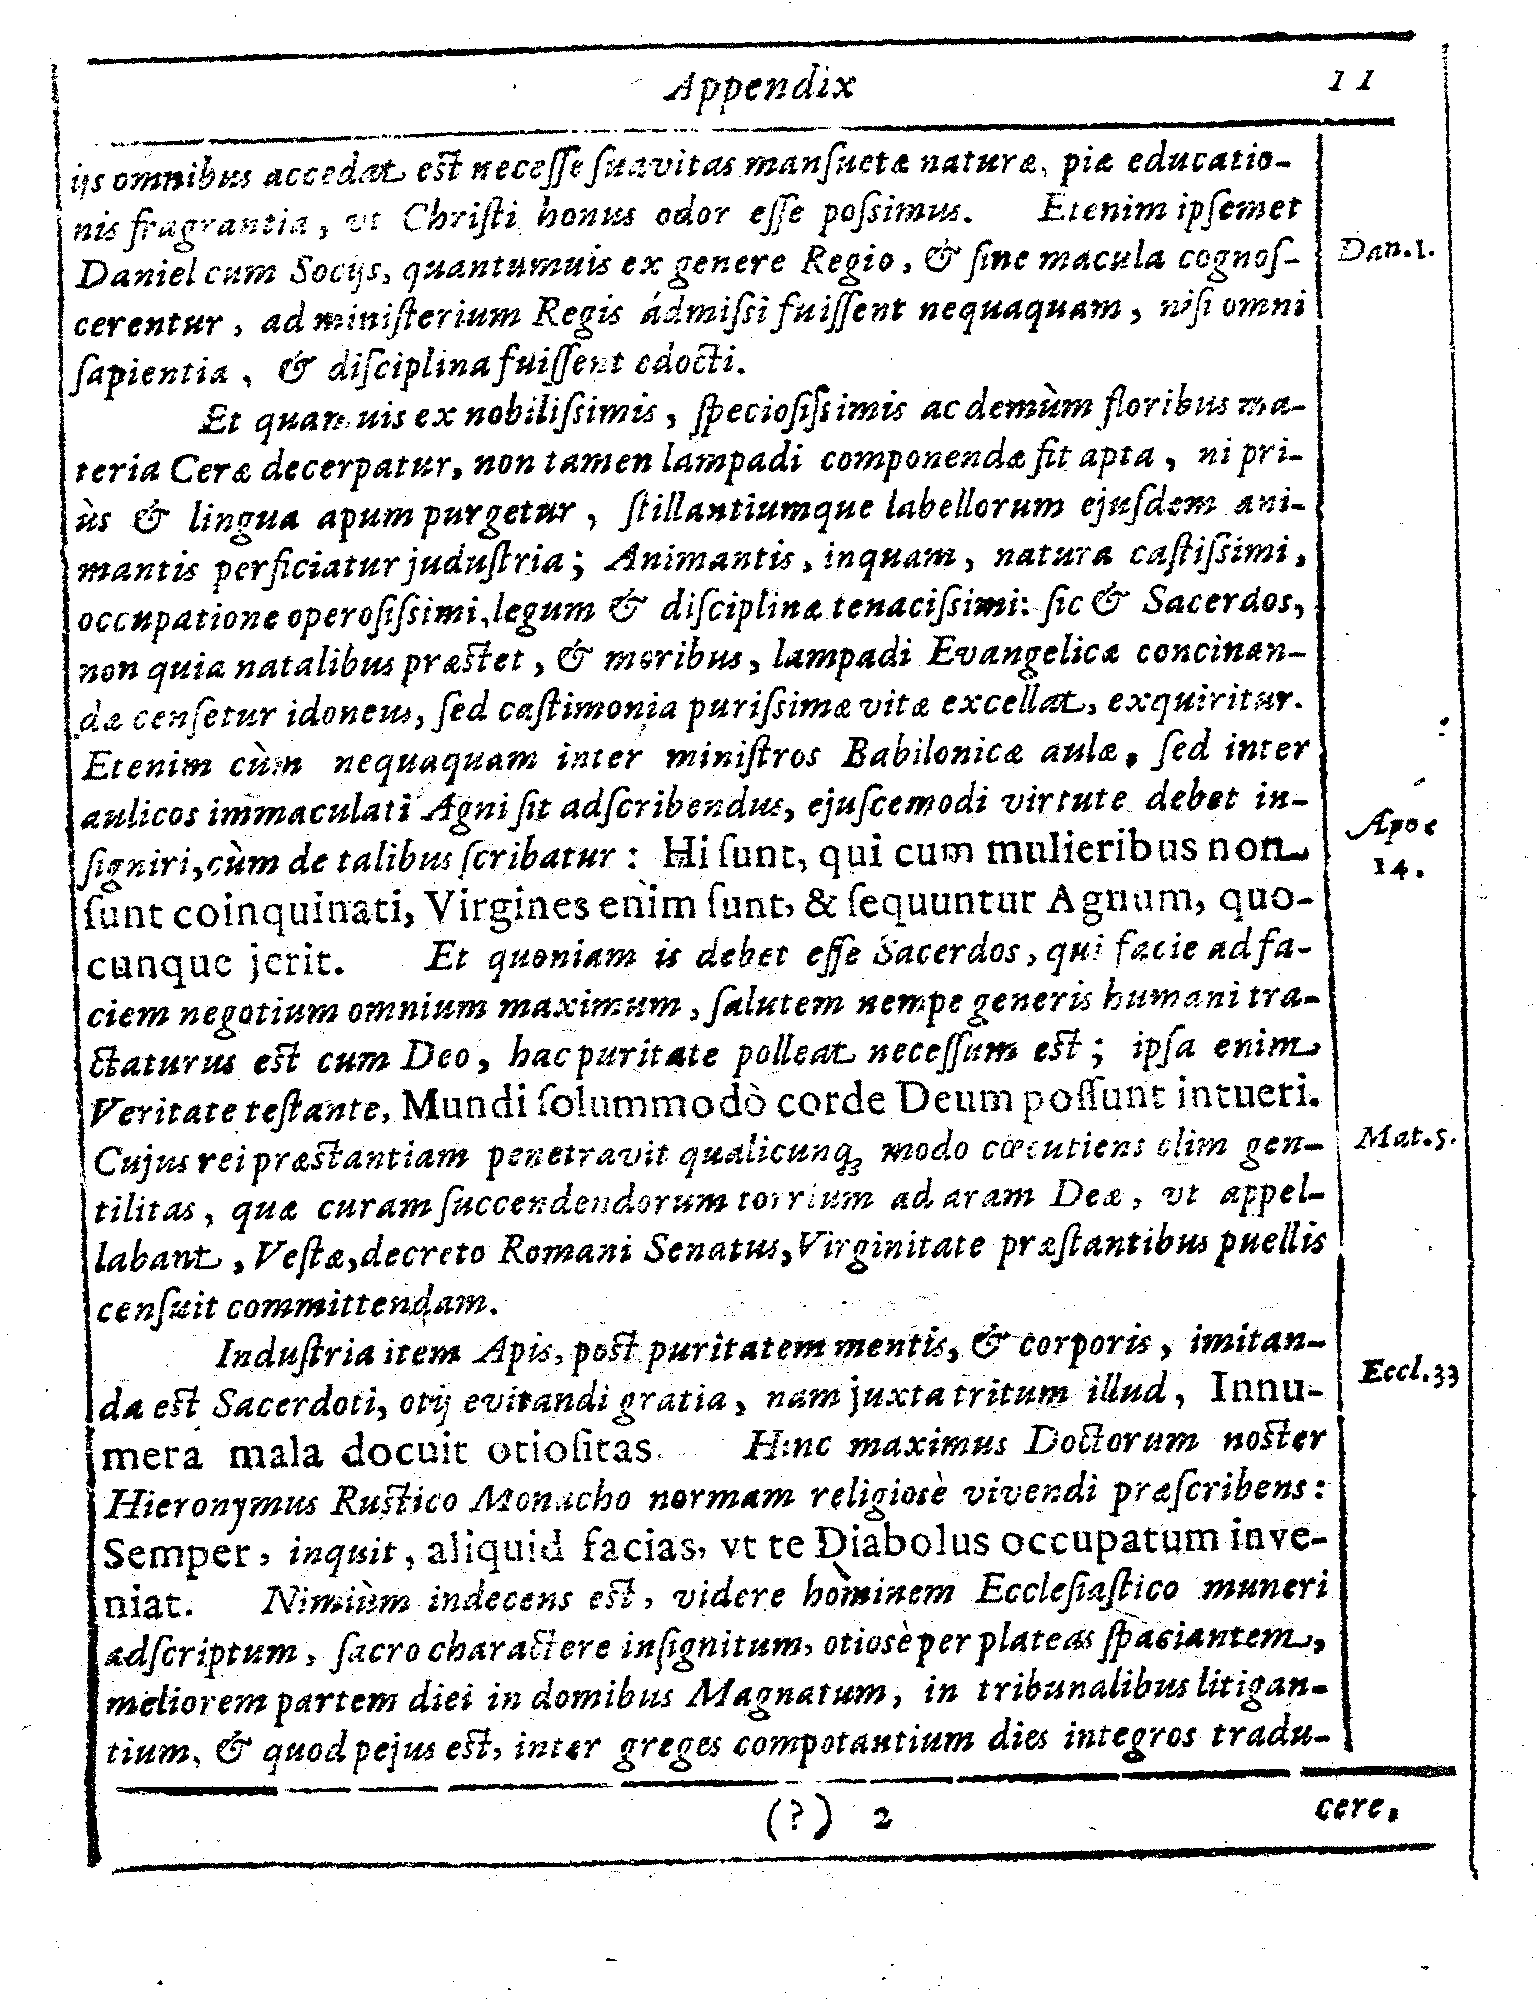 Appendix 11
ijs omnibus accedat est necesse suavitas mansuetæ naturæ, piæ educatio-
nis fragrantia, vt Christi bonus odor esse possimus. Etenim ipsemet
Daniel cum Socijs, quantumuis ex genere Regio, & sine macula cognos-
Dan.1.
cerentur, ad ministerium Regis ádmissi fuissent nequaquam, nisi omni
sapientia, & disciplina fuissent edocti.
Et quamuis ex nobilissimis, speciosissimis ac demùm floribus ma-
teria Ceræ decerpatur, non tamen lampadi componendæ fit apta, ni pri-
ùs & lingua apum purgetur, stillantiumque labellorum ejusdem ani-
mantis perficiatur judustria; Animantis, inquam, natura castissimi,
occupatione operosissimi, legum & disciplinæ tenacissimi: sic & Sacerdos,
non quia natalibus præstet, & moribus, lampadi Evangelicæ concinan-
dæ censetur idoneus, sed castimonia purissimæ vitæ excellat, exquiritur.
Etenim cùm nequaquam inter ministros Babilonicæ aulæ, sed inter
aulicos immaculati Agni sit adscribendus, ejuscemodi virtute debet in-
signiri, cùm de talibus scribatur: Hi sunt, qui cum mulieribus non
Apoc
14.
sunt coinquinati, Virgines enim sunt, & sequuntur Agnum, quo-
cunque jerit. Et quoniam is debet esse Sacerdos, qui facie ad fa-
ciem negotium omnium maximum, salutem nempe generis humani tra-
ctaturus est cum Deo, hac puritate polleat necessum est; ipsa enim
Veritate testante, Mundi solummodò corde Deum possunt intueri.
Cujus rei præstantiam penetravit qualicunq; modo cœcutiens olim gen-
Mat.5.
tilitas, quæ curam succendendorum torrium ad aram Deæ, vt appel-
labant, Vestæ, decreto Romani Senatus, Virginitate præstantibus puellis
censuit committendam.
Industria item Apis, post puritatem mentis, & corporis, imitan-
da est Sacerdoti, otij evitandi gratia, nam juxta tritum illud, Innu-
Eccl.33
mera mala docuit otiositas. Hinc maximus Doctorum noster
Hieronymus Rustico Monacho normam religiosè vivendi præscribens:
Semper, inquit, aliquid facias, vt te Diabolus occupatum inve-
niat. Nimiùm indecens est, videre hominem Ecclesiastico muneri
adscriptum, sacro charactere insignitum, otiosè per plateas spaciantem,
meliorem partem diei in domibus Magnatum, in tribunalibus litigan-
tium, & quod pejus est, inter greges compotantium dies integros tradu-
(?) 2 cere,